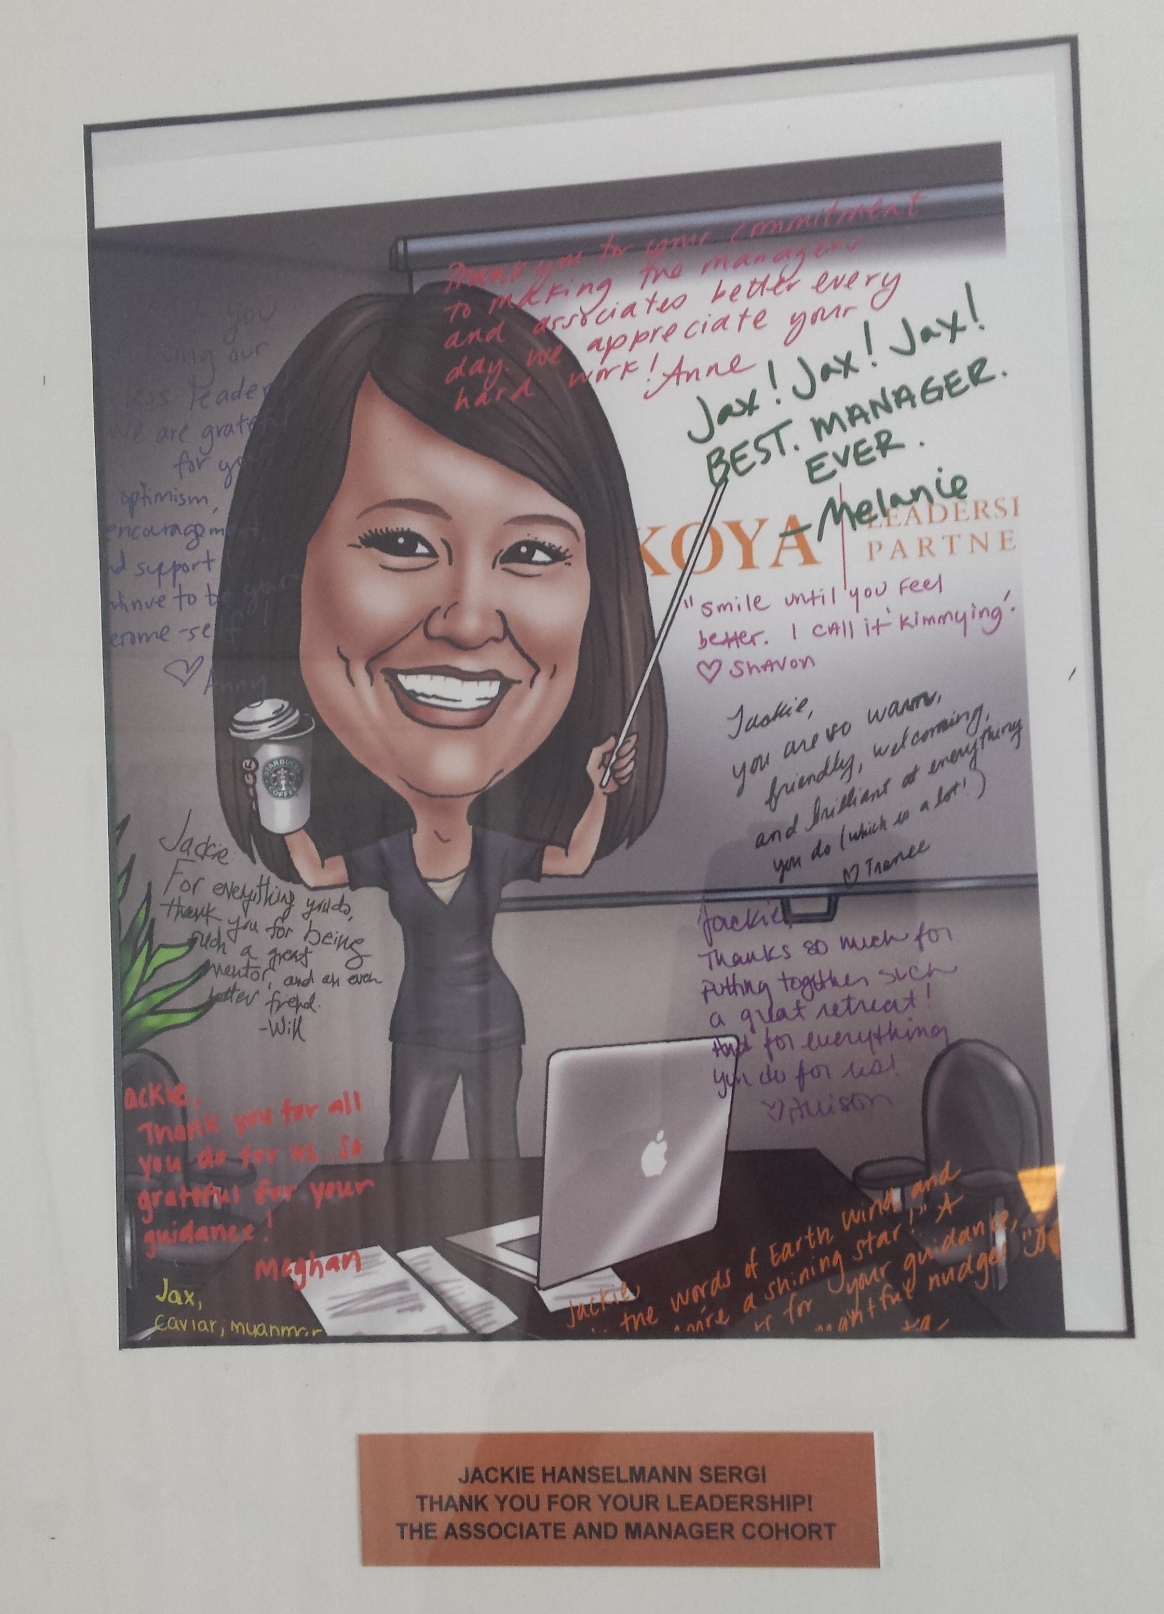 Thank you for your commitment
to making the managers
and associates better every
day. We appreciate your
hard work! Anne
Jax! Jax! Jax!
BEST. MANAGER.
EVER.
-Melanie
KOYA
LEADERSI
PARTNE
"Smile until you feel
better. I call it 'Kimmying'.
♡ Shavon
Jackie,
you are so warm,
friendly, welcoming,
and brilliant at everything
you do (which is a lot!)
♡
you
our
leader
are
for yo
optimism,
encouragement,
nd support
tinue to be your
erome-self!
♡ Anny
STARBUCKS
COFFEE
Jackie:
For everything you do,
thank you for being
such a great
mentor, and an even
better friend.
-Will
Jackie,
Thanks so much for
putting together such
a great retreat!
And for everything
you do for us!
♡ Allison
ackie,
Thank you for all
you do for us. So
grateful for your
guidance!
Meghan
Jax,
caviar, myanmar
Jackie,
in the words of Earth, Wind and
a shining star!"
for your guidance,
nudges
JACKIE HANSELMANN SERGI
THANK YOU FOR YOUR LEADERSHIP!
THE ASSOCIATE AND MANAGER COHORT